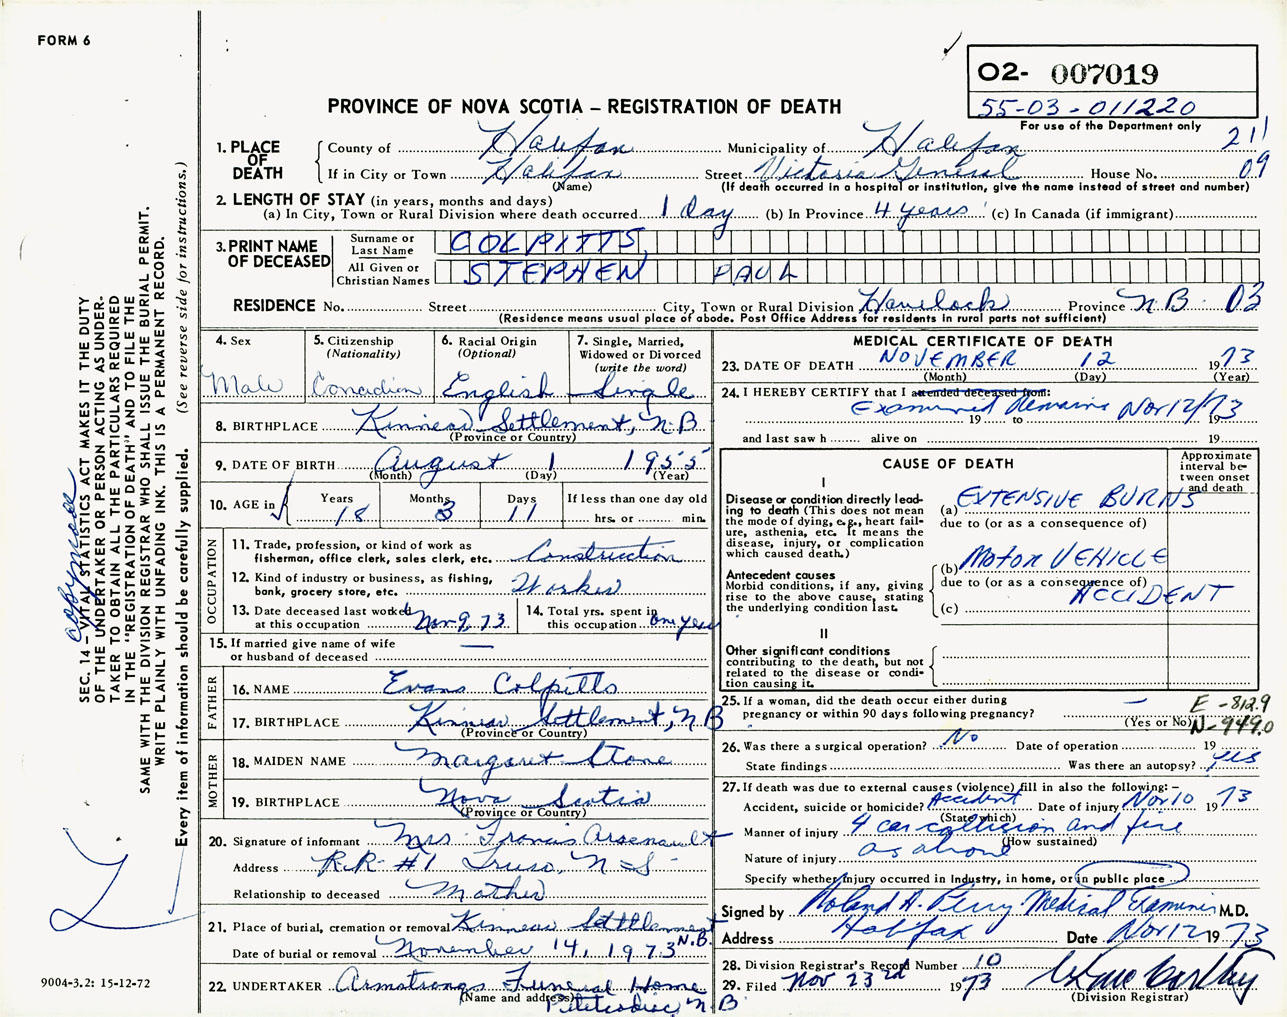 FORM 6
O2- 007019
55-03-011220
For use of the Department only
PROVINCE OF NOVA SCOTIA – REGISTRATION OF DEATH
211
09
1. PLACE OF DEATH
County of Halifax Municipality of Halifax
If in City or Town Halifax Street Victoria General House No.
(Name) (If death occurred in a hospital or institution, give the name instead of street and number)
2. LENGTH OF STAY (in years, months and days)
(a) In City, Town or Rural Division where death occurred 1 Day (b) In Province 4 years (c) In Canada (if immigrant)
3. PRINT NAME OF DECEASED
Surname or Last Name COLPITTS
All Given or Christian Names STEPHEN PAUL
RESIDENCE No. Street City, Town or Rural Division Havelock Province N.B. 03
(Residence means usual place of abode. Post Office Address for residents in rural parts not sufficient)
4. Sex Male
5. Citizenship (Nationality) Canadian
6. Racial Origin (Optional) English
7. Single, Married, Widowed or Divorced (write the word) Single
8. BIRTHPLACE Kinnear Settlement, N.B
(Province or Country)
9. DATE OF BIRTH August 1 1955
(Month) (Day) (Year)
10. AGE in Years 18 Months 3 Days 11 If less than one day old hrs. or min.
OCCUPATION
11. Trade, profession, or kind of work as fisherman, office clerk, sales clerk, etc. Construction
12. Kind of industry or business, as fishing, bank, grocery store, etc. Worker
13. Date deceased last worked at this occupation Nov 9, 73
14. Total yrs. spent in this occupation one year
15. If married give name of wife or husband of deceased —
FATHER
16. NAME Evans Colpitts
17. BIRTHPLACE Kinnear Settlement, N.B
(Province or Country)
MOTHER
18. MAIDEN NAME Margaret Stone
19. BIRTHPLACE Nova Scotia
(Province or Country)
20. Signature of informant Mrs Francis Arsenault
Address R.R #1 Truro, N-S-
Relationship to deceased Mother
21. Place of burial, cremation or removal Kinnear Settlement N.B.
Date of burial or removal November 14, 1973
22. UNDERTAKER Armstrongs Funeral Home
(Name and address) Petitcodiac, N.B
MEDICAL CERTIFICATE OF DEATH
23. DATE OF DEATH NOVEMBER 12 1973
(Month) (Day) (Year)
24. I HEREBY CERTIFY that I attended deceased from:
Examined Remains Nov 12/73
19 to 19
and last saw h alive on 19
CAUSE OF DEATH
Approximate interval between onset and death
I
Disease or condition directly leading to death (This does not mean the mode of dying, e.g., heart failure, asthenia, etc. It means the disease, injury, or complication which caused death.)
(a) EXTENSIVE BURNS
due to (or as a consequence of)
Antecedent causes
Morbid conditions, if any, giving rise to the above cause, stating the underlying condition last.
(b) MOTOR VEHICLE
due to (or as a consequence of)
ACCIDENT
(c)
II
Other significant conditions contributing to the death, but not related to the disease or condition causing it.
25. If a woman, did the death occur either during pregnancy or within 90 days following pregnancy? —
(Yes or No)
E-812.9
N-949.0
26. Was there a surgical operation? No Date of operation 19
State findings Was there an autopsy? yes
27. If death was due to external causes (violence) fill in also the following:–
Accident, suicide or homicide? Accident Date of injury Nov 10 1973
(State which)
Manner of injury 4 car collision and fire
(How sustained)
Nature of injury as above
Specify whether injury occurred in industry, in home, or in public place
Signed by Roland A. Perry Medical Examiner M.D.
Address Halifax Date Nov 12 1973
28. Division Registrar's Record Number 10
29. Filed Nov 23rd 1973
(Division Registrar)
copy made
SEC. 14 – VITAL STATISTICS ACT MAKES IT THE DUTY
OF THE UNDERTAKER OR PERSON ACTING AS UNDER-
TAKER TO OBTAIN ALL THE PARTICULARS REQUIRED
IN THE "REGISTRATION OF DEATH" AND TO FILE THE
SAME WITH THE DIVISION REGISTRAR WHO SHALL ISSUE THE BURIAL PERMIT.
WRITE PLAINLY WITH UNFADING INK. THIS IS A PERMANENT RECORD.
Every item of information should be carefully supplied. (See reverse side for instructions.)
9004-3.2: 15-12-72